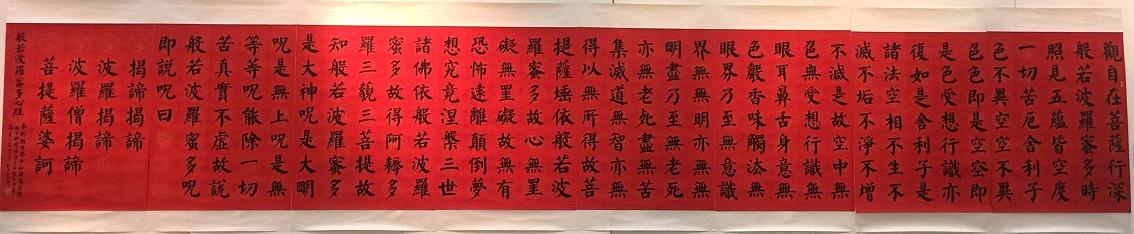 觀自在菩薩行深
般若波羅蜜多時
照見五蘊皆空度
一切苦厄舍利子
色不異空空不異
色色即是空空即
是色受想行識亦
復如是舍利子是
諸法空相不生不
滅不垢不淨不增
不減是故空中無
色無受想行識無
眼耳鼻舌身意無
色聲香味觸法無
眼界乃至無意識
界無無明亦無無
明盡乃至無老死
亦無老死盡無苦
集滅道無智亦無
得以無所得故菩
提薩埵依般若波
羅蜜多故心無罣
礙無罣礙故無有
恐怖遠離顛倒夢
想究竟涅槃三世
諸佛依般若波羅
蜜多故得阿耨多
羅三藐三菩提故
知般若波羅蜜多
是大神呪是大明
呪是無上呪是無
等等呪能除一切
苦真實不虛故說
般若波羅蜜多呪
即說呪曰
揭諦揭諦
波羅揭諦
波羅僧揭諦
菩提薩婆訶
般若波羅蜜多心經